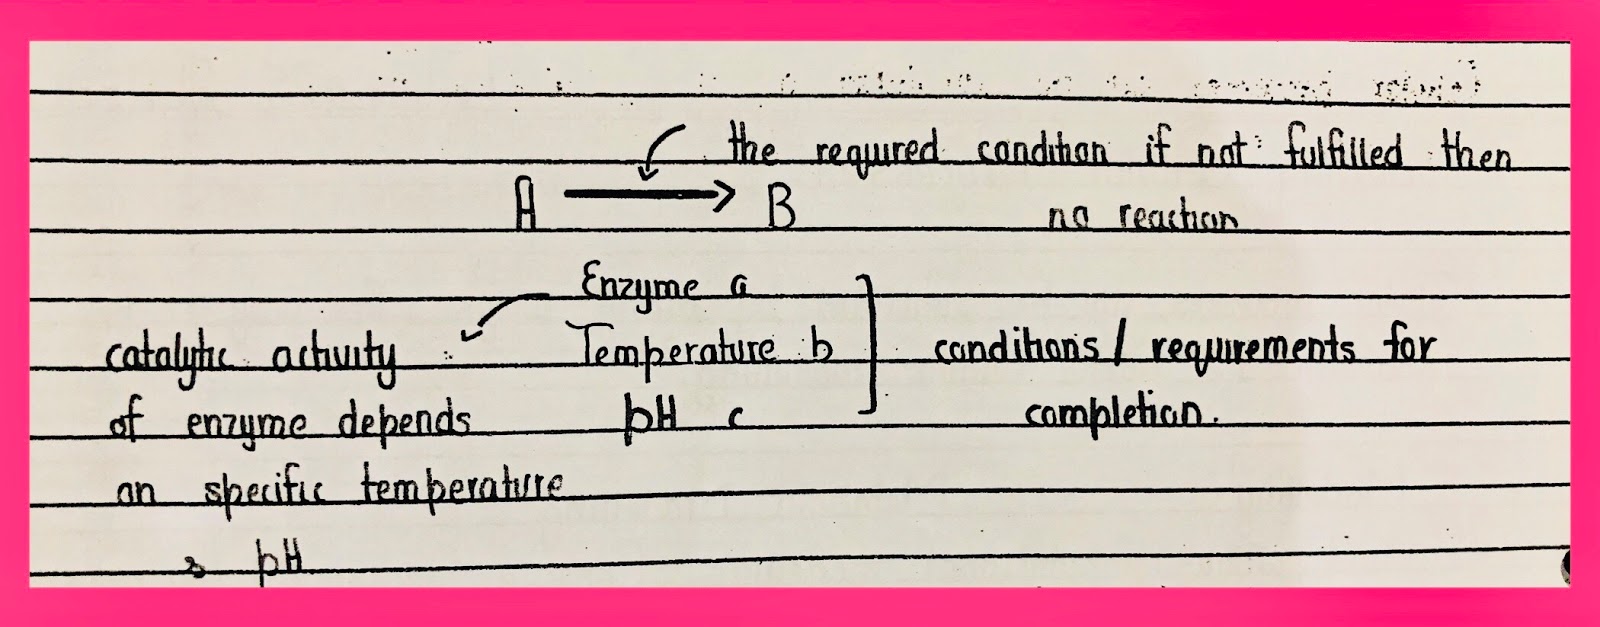 the required condition if not fulfilled then
A → B no reaction
Enzyme a
catalytic activity Temperature b conditions / requirements for
of enzyme depends pH c completion.
on specific temperature
pH